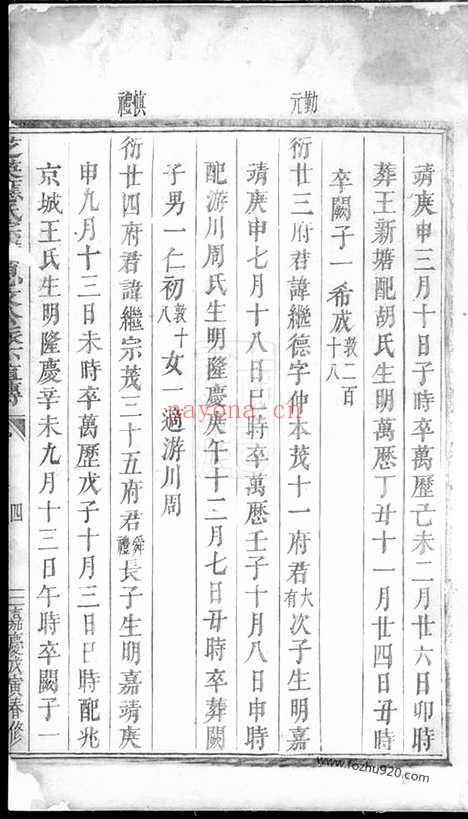 勤元
慎禮
靖庚申十二月三日子時卒萬歷己未二月廿六日卯時
葬王新塘配胡氏生明萬歷丁丑十一月廿四日丑時
卒闕子一希成敦二百十八
衍廿三府君諱繼德字仲本茂十一府君大有次子生明嘉
靖庚申七月十八日巳時卒萬歷壬子十月八日申時
配游川周氏生明隆慶庚午十二月七日丑時卒葬闕
子男一仁初敦十八女一適游川周
衍廿四府君諱繼宗茂三十五府君舜禮長子生明嘉靖庚
申九月十三日未時卒萬歷戊子十月三日巳時配兆
京城王氏生明隆慶辛未九月十三日午時卒闕子一
四
嘉慶戊寅春修
nayona.cn
www.fozhu920.com